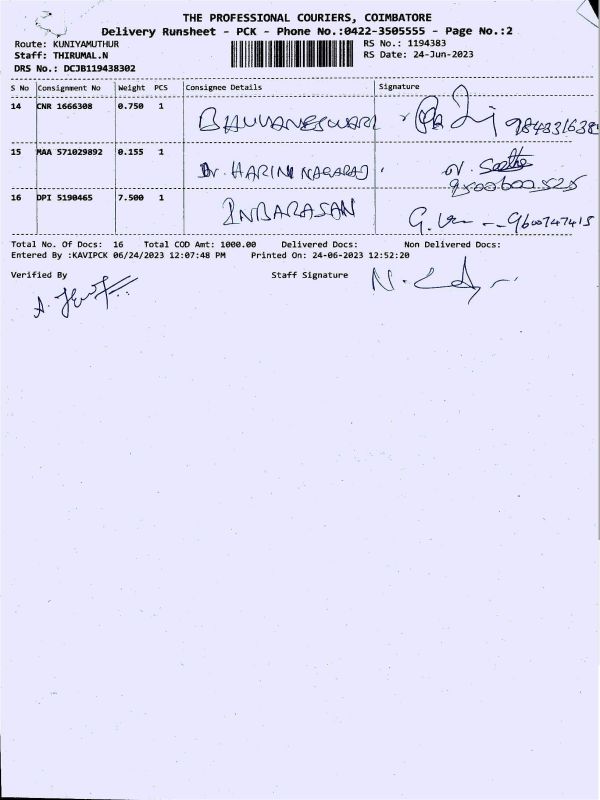 THE PROFESSIONAL COURIERS, COIMBATORE
Delivery Runsheet - PCK - Phone No.:0422-3505555 - Page No.:2
Route: KUNIYAMUTHUR
RS No.: 1194383
Staff: THIRUMAL.N
RS Date: 24-Jun-2023
DRS No.: DCJB119438302
S No Consignment No Weight PCS Consignee Details Signature
14 CNR 1666308 0.750 1 BHUVANESWARI
15 MAA 571029892 0.155 1 Dr. HARINI NAGARAJ
9500600525
16 DPI 5190465 7.500 1 INBARASAN 9600747415
Total No. Of Docs: 16 Total COD Amt: 1000.00 Delivered Docs: Non Delivered Docs:
Entered By :KAVIPCK 06/24/2023 12:07:48 PM Printed On: 24-06-2023 12:52:20
Verified By Staff Signature